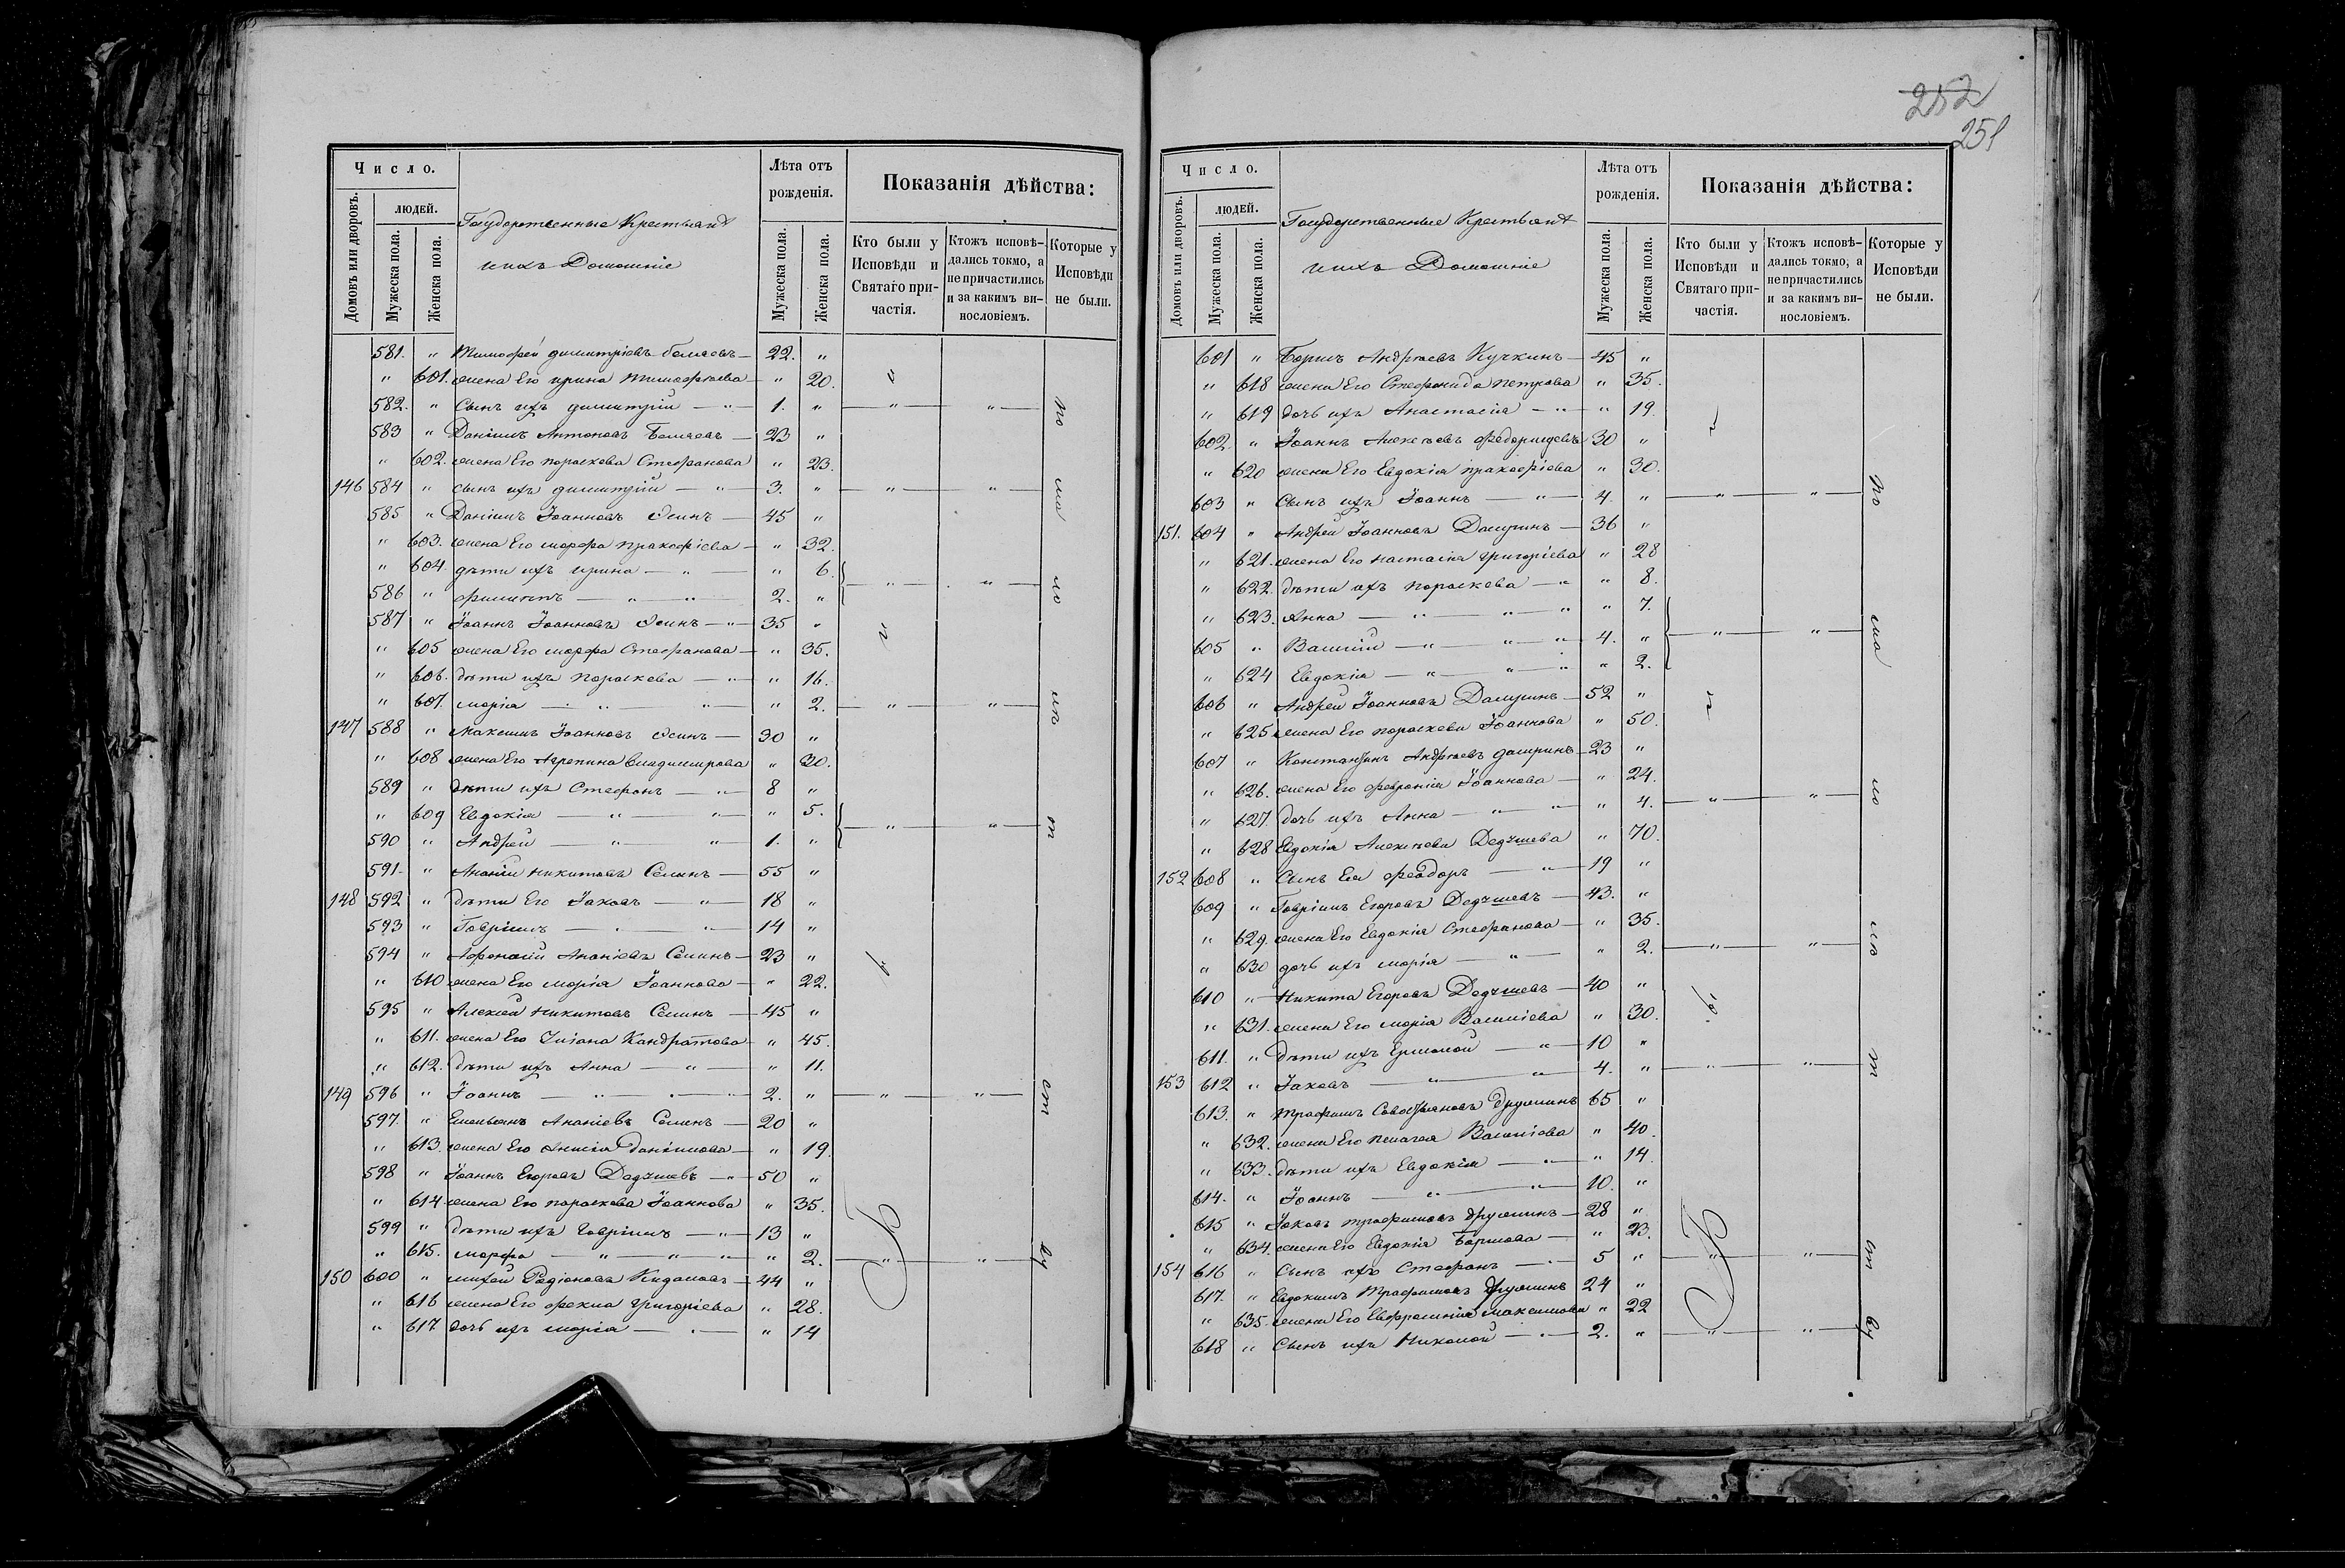 252
251
Число.
Лѣта отъ рожденія.
Показанія дѣйства:
Домовъ или дворовъ.
людей.
Мужеска пола.
Женска пола.
Государственные Крестьяне
и ихъ Домашніе
Мужеска пола.
Женска пола.
Кто были у Исповѣди и Святаго причастія.
Ктожъ исповѣдались токмо, а не причастились и за какимъ винословіемъ.
Которые у Исповѣди не были.
581. " Тимофей Димитріевъ — 22. "
" 601. жена Его Ирина Тимофеева — " 20.
582. " Сынъ ихъ Димитрій — " — 1. "
583 " Даніилъ Антоновъ — 23 "
" 602. жена Его Пораскева Стефанова " 23.
146 584 " сынъ ихъ Димитрій — " — 3. "
585 " Даніилъ Іоанновъ — 45 "
" 603. жена Его Марфа Пракофіева — " 32.
" 604. дѣти ихъ Ирина — " — " 6.
586 " Филиппъ — " — " — 2. "
587 " Іоаннъ Іоанновъ — " 35 "
" 605 жена Его Марфа Стефанова — " 35.
" 606. дѣти ихъ Пораскева — " — " 16.
" 607. Марія — " — " " 2.
147 588 " Максимъ Іоанновъ — 30 "
" 608 жена Его Агрепина Владимирова " 30.
589 " дѣти ихъ Стефанъ — " — 8 "
" 609 Евдокія — " — " — " 5.
590 " Андрей — " — " — 1. "
591. " Ананій Никитовъ Семинъ — 55 "
148 592 " дѣти Его Іаковъ — " — 18 "
593 " Гавріилъ — " — " — 14 "
594 " Афонасій Ананіевъ Семинъ — 23 "
" 610 жена Его Марія Іоаннова — " 22.
595 " Алексей Никитовъ Семинъ — 45 "
" 611. жена Его Кандратова — " 45.
" 612. дѣти ихъ Анна — " — " 11.
149 596 " Іоаннъ — " — " — 2. "
597. " Емельянъ Ананіевъ Семинъ — 20 "
" 613. жена Его Данiилова — " 19.
598 " Іоаннъ Егоровъ — " 50 "
" 614. жена Его Пораскева Іоаннова " 35.
599 " дѣти ихъ Гавріилъ — " — 13 "
" 615. Марфа — " — " — " " 2.
150 600 " Михей Радіоновъ — 44 "
" 616 жена Его Фекла Григоріева " 28.
" 617. дочь ихъ Марія — " — " 14
Число.
Лѣта отъ рожденія.
Показанія дѣйства:
Домовъ или дворовъ.
людей.
Мужеска пола.
Женска пола.
Государственные Крестьяне
и ихъ Домашніе
Мужеска пола.
Женска пола.
Кто были у Исповѣди и Святаго причастія.
Ктожъ исповѣдались токмо, а не причастились и за какимъ винословіемъ.
Которые у Исповѣди не были.
601 " Борисъ Андреевъ Кучкинъ — 45 "
" 618 жена Его Стефанида Петрова " 35.
" 619 дочь ихъ Анастасія — " — " 19.
602. " Іоаннъ Алексѣевъ 30 "
" 620 жена Его Евдокія Пракофіева " 30.
603 " Сынъ ихъ Іоаннъ — " — 4. "
151. 604 " Андрей Іоанновъ — 36 "
" 621. жена Его Настасія Григоріева " 28
" 622. дѣти ихъ Пораскева — " " 8.
" 623. Анна — " — " — " " 7.
605 " Василій — " — " — " 4. "
" 624 Евдокія — " — " — " " 2.
606 " Андрей Іоанновъ — 52 "
" 625 жена Его Пораскева Іоаннова " 50.
607 " Константинъ Андреевъ — 23 "
" 626. жена Его Февронія Іоаннова — " 24.
" 627. дочь ихъ Анна — " — " " 4.
" 628 Евдокія Алексѣева " 70.
152 608 " Сынъ Ея Феодоръ — " — 19 "
609 " Гавріилъ Егоровъ — 43. "
" 629. жена Его Евдокія Стефанова — " 35.
" 630 дочь ихъ Марія — " — " 2.
610 " Никита Егоровъ — 40 "
" 631. жена Его Марія Василіева " 30.
611. " дѣти ихъ Ермолай — " — 10 "
153 612 " Іаковъ — " — " — 4. "
613. " Трафимъ 65 "
" 632. жена Его Пелагея Василіева " 40.
" 633. дѣти ихъ Евдокія — " — " 14.
614. " Іоаннъ — " — " — 10. "
615 " Іаковъ Трафимовъ — 28 "
" 634. жена Его Евдокія Борисова — " 23.
154 616 " Сынъ ихъ Стефанъ — " 5 "
617. " Евдокимъ Трафимовъ 24 "
" 635. жена Его Евфросинія Максимова " 22
618 " Сынъ ихъ Николай — " — 2. "